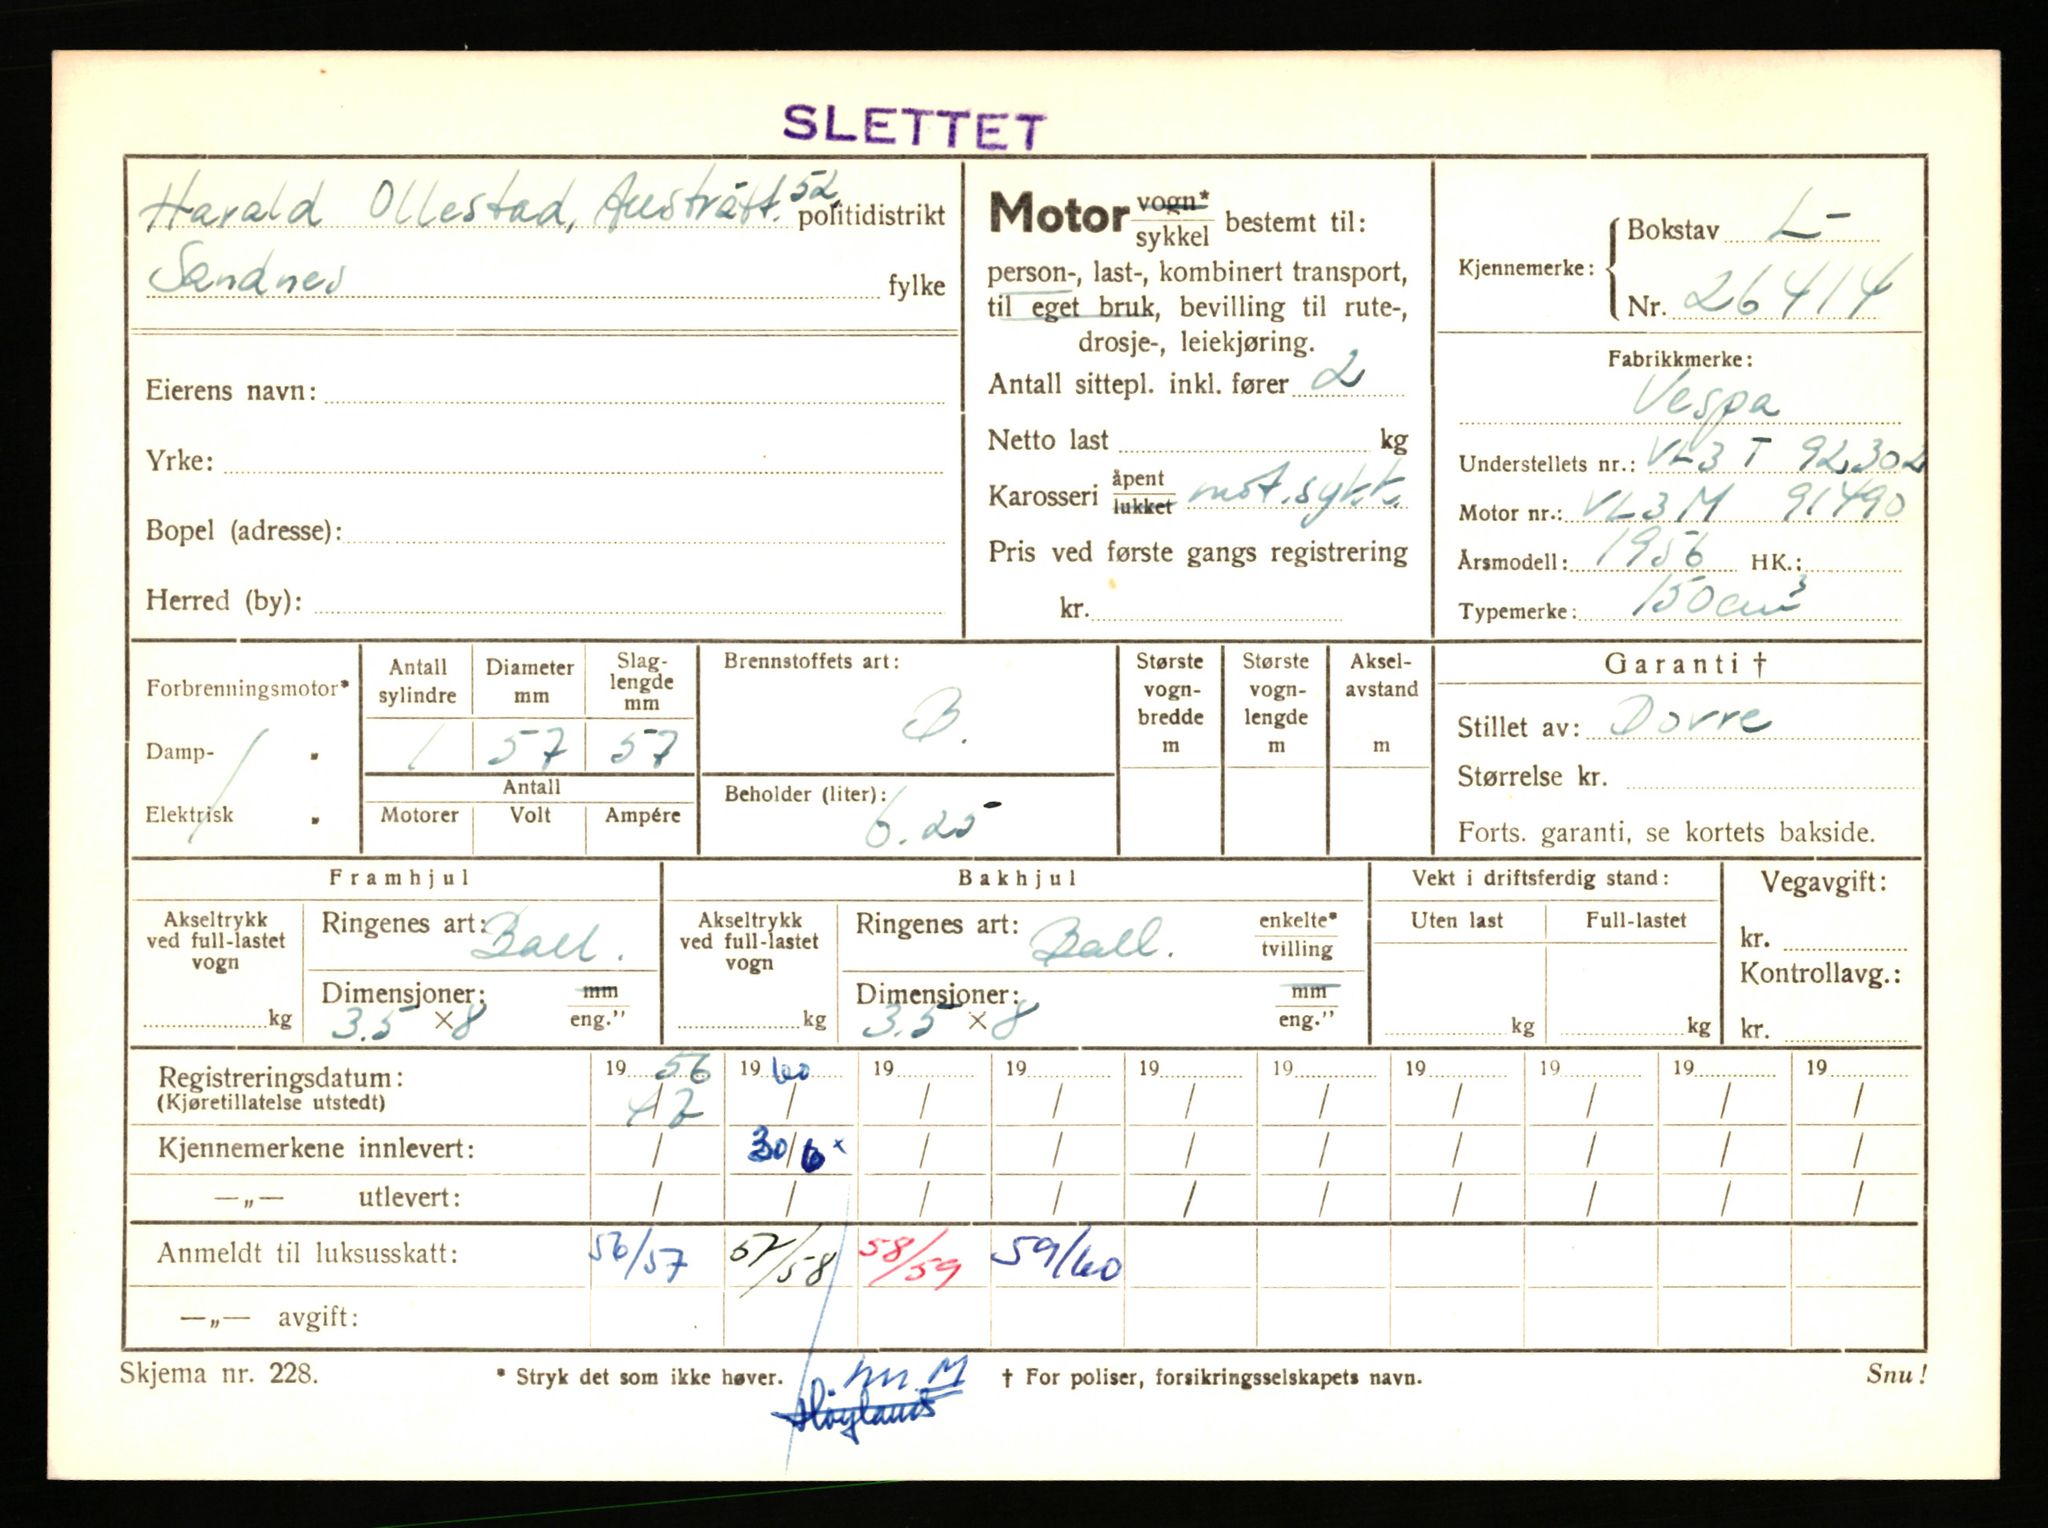 SLETTET
Harald Ollestad, Austrått. 52, politidistrikt
Sandnes fylke
Eierens navn:
Yrke:
Bopel (adresse):
Herred (by):
Motor vogn* sykkel bestemt til:
person-, last-, kombinert transport,
til eget bruk, bevilling til rute-,
drosje-, leiekjøring.
Antall sittepl. inkl. fører 2
Netto last kg
Karosseri åpent lukket mot.sykk.
Pris ved første gangs registrering
kr.
Kjennemerke: Bokstav L-
Nr. 26414
Fabrikkmerke:
Vespa
Understellets nr.: VL3 T 92302
Motor nr.: VL3M 91490
Årsmodell: 1956 HK.:
Typemerke: 150 cm³
Forbrenningsmotor*
Damp- "
Elektrisk "
Antall sylindre Diameter mm Slag-lengde mm
1 57 57
Antall
Motorer Volt Ampére
Brennstoffets art:
B.
Beholder (liter):
6.25
Største vogn-bredde m
Største vogn-lengde m
Aksel-avstand m
Garanti †
Stillet av: Dovre
Størrelse kr.
Forts. garanti, se kortets bakside.
Framhjul
Akseltrykk ved full-lastet vogn
kg
Ringenes art: Ball.
Dimensjoner: mm eng."
3.5 × 8
Bakhjul
Akseltrykk ved full-lastet vogn
kg
Ringenes art: Ball. enkelte* tvilling
Dimensjoner: mm eng."
3.5 × 8
Vekt i driftsferdig stand:
Uten last Full-lastet
kg kg
Vegavgift:
kr.
Kontrollavg.:
kr.
Registreringsdatum: 19 56 19 60 19 19 19 19 19 19 19 19
(Kjøretillatelse utstedt) 4/7 / / / / / / / / /
Kjennemerkene innlevert: / 30/6 x / / / / / / / /
—„— utlevert: / / / / / / / / / /
Anmeldt til luksusskatt: 56/57 57/58 58/59 59/60
—„— avgift:
Skjema nr. 228. * Stryk det som ikke høver. † For poliser, forsikringsselskapets navn. Snu!
M
Høyland